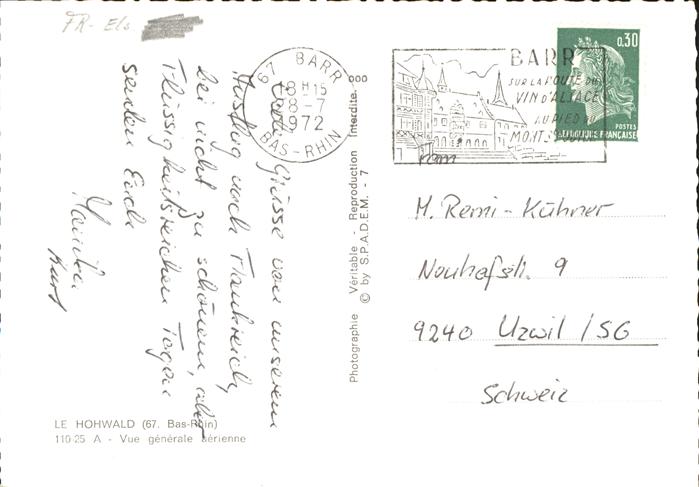 FR-Els
67 BARR
18H15
28-7
1972
BAS-RHIN
BARR
SUR LA ROUTE DU
VIN D'ALSACE
AU PIED DU
MONT STE ODILE
0,30
POSTES
REPUBLIQUE FRANÇAISE
Fam.
M. Remi-Kühner
Neuhofstr. 9
9240 Uzwil/SG
Schweiz
Grüsse von unserem
Ausflug nach Frankreich,
bei nicht zu schönen, aber
Flüssigkeitsreichen Tagen
senden Euch
Kurt
Photographie Véritable - Reproduction Interdite.
© by S.P.A.D.E.M. - 7
LE HOHWALD (67. Bas-Rhin)
110-25 A - Vue générale aérienne